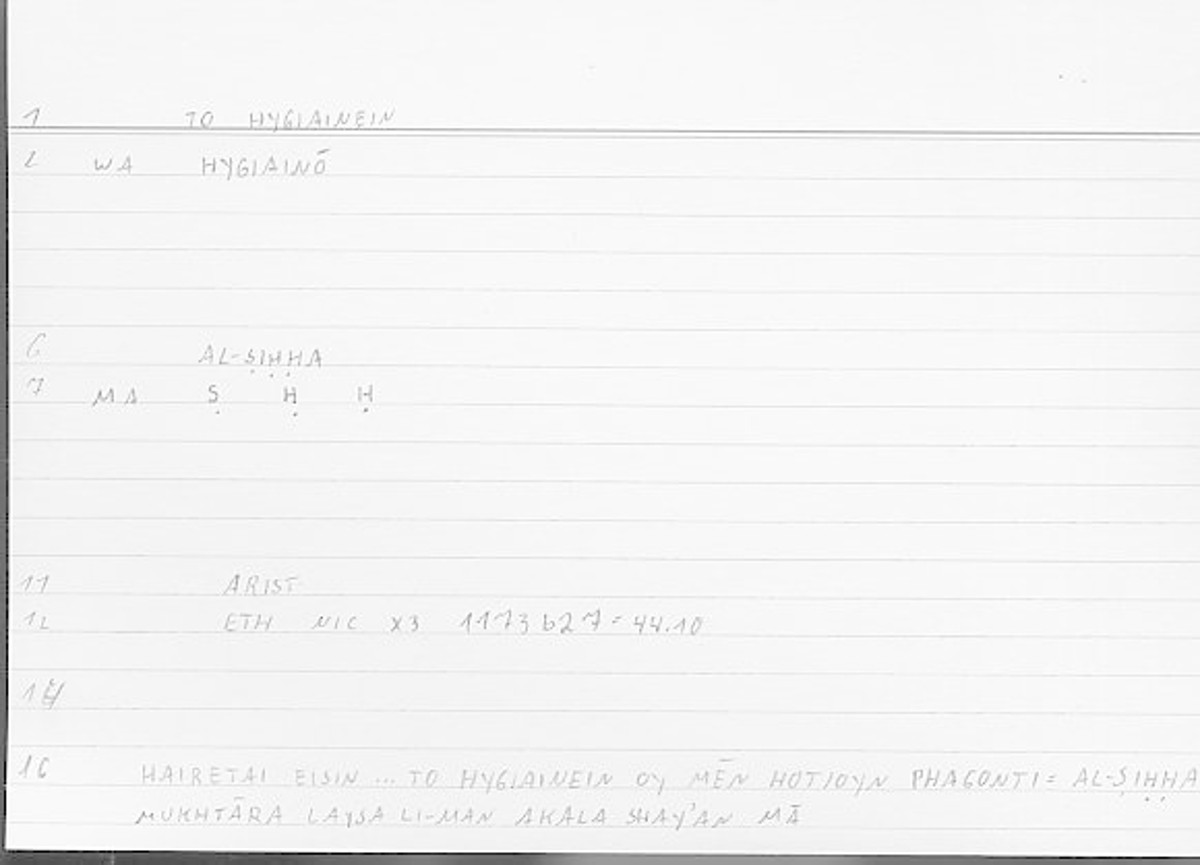 1 TO HYGIAINEIN
2 WA HYGIAINŌ
6 AL-ṢIḤḤA
7 MA Ṣ Ḥ Ḥ
11 ARIST
12 ETH NIC X3 1173 b27 = 44.10
16 HAIRETAI EISIN ... TO HYGIAINEIN OY MĒN HOTIOYN PHAGONTI = AL-ṢIḤḤA
MUKHTĀRA LAYSA LI-MAN AKALA SHAY'AN MĀ